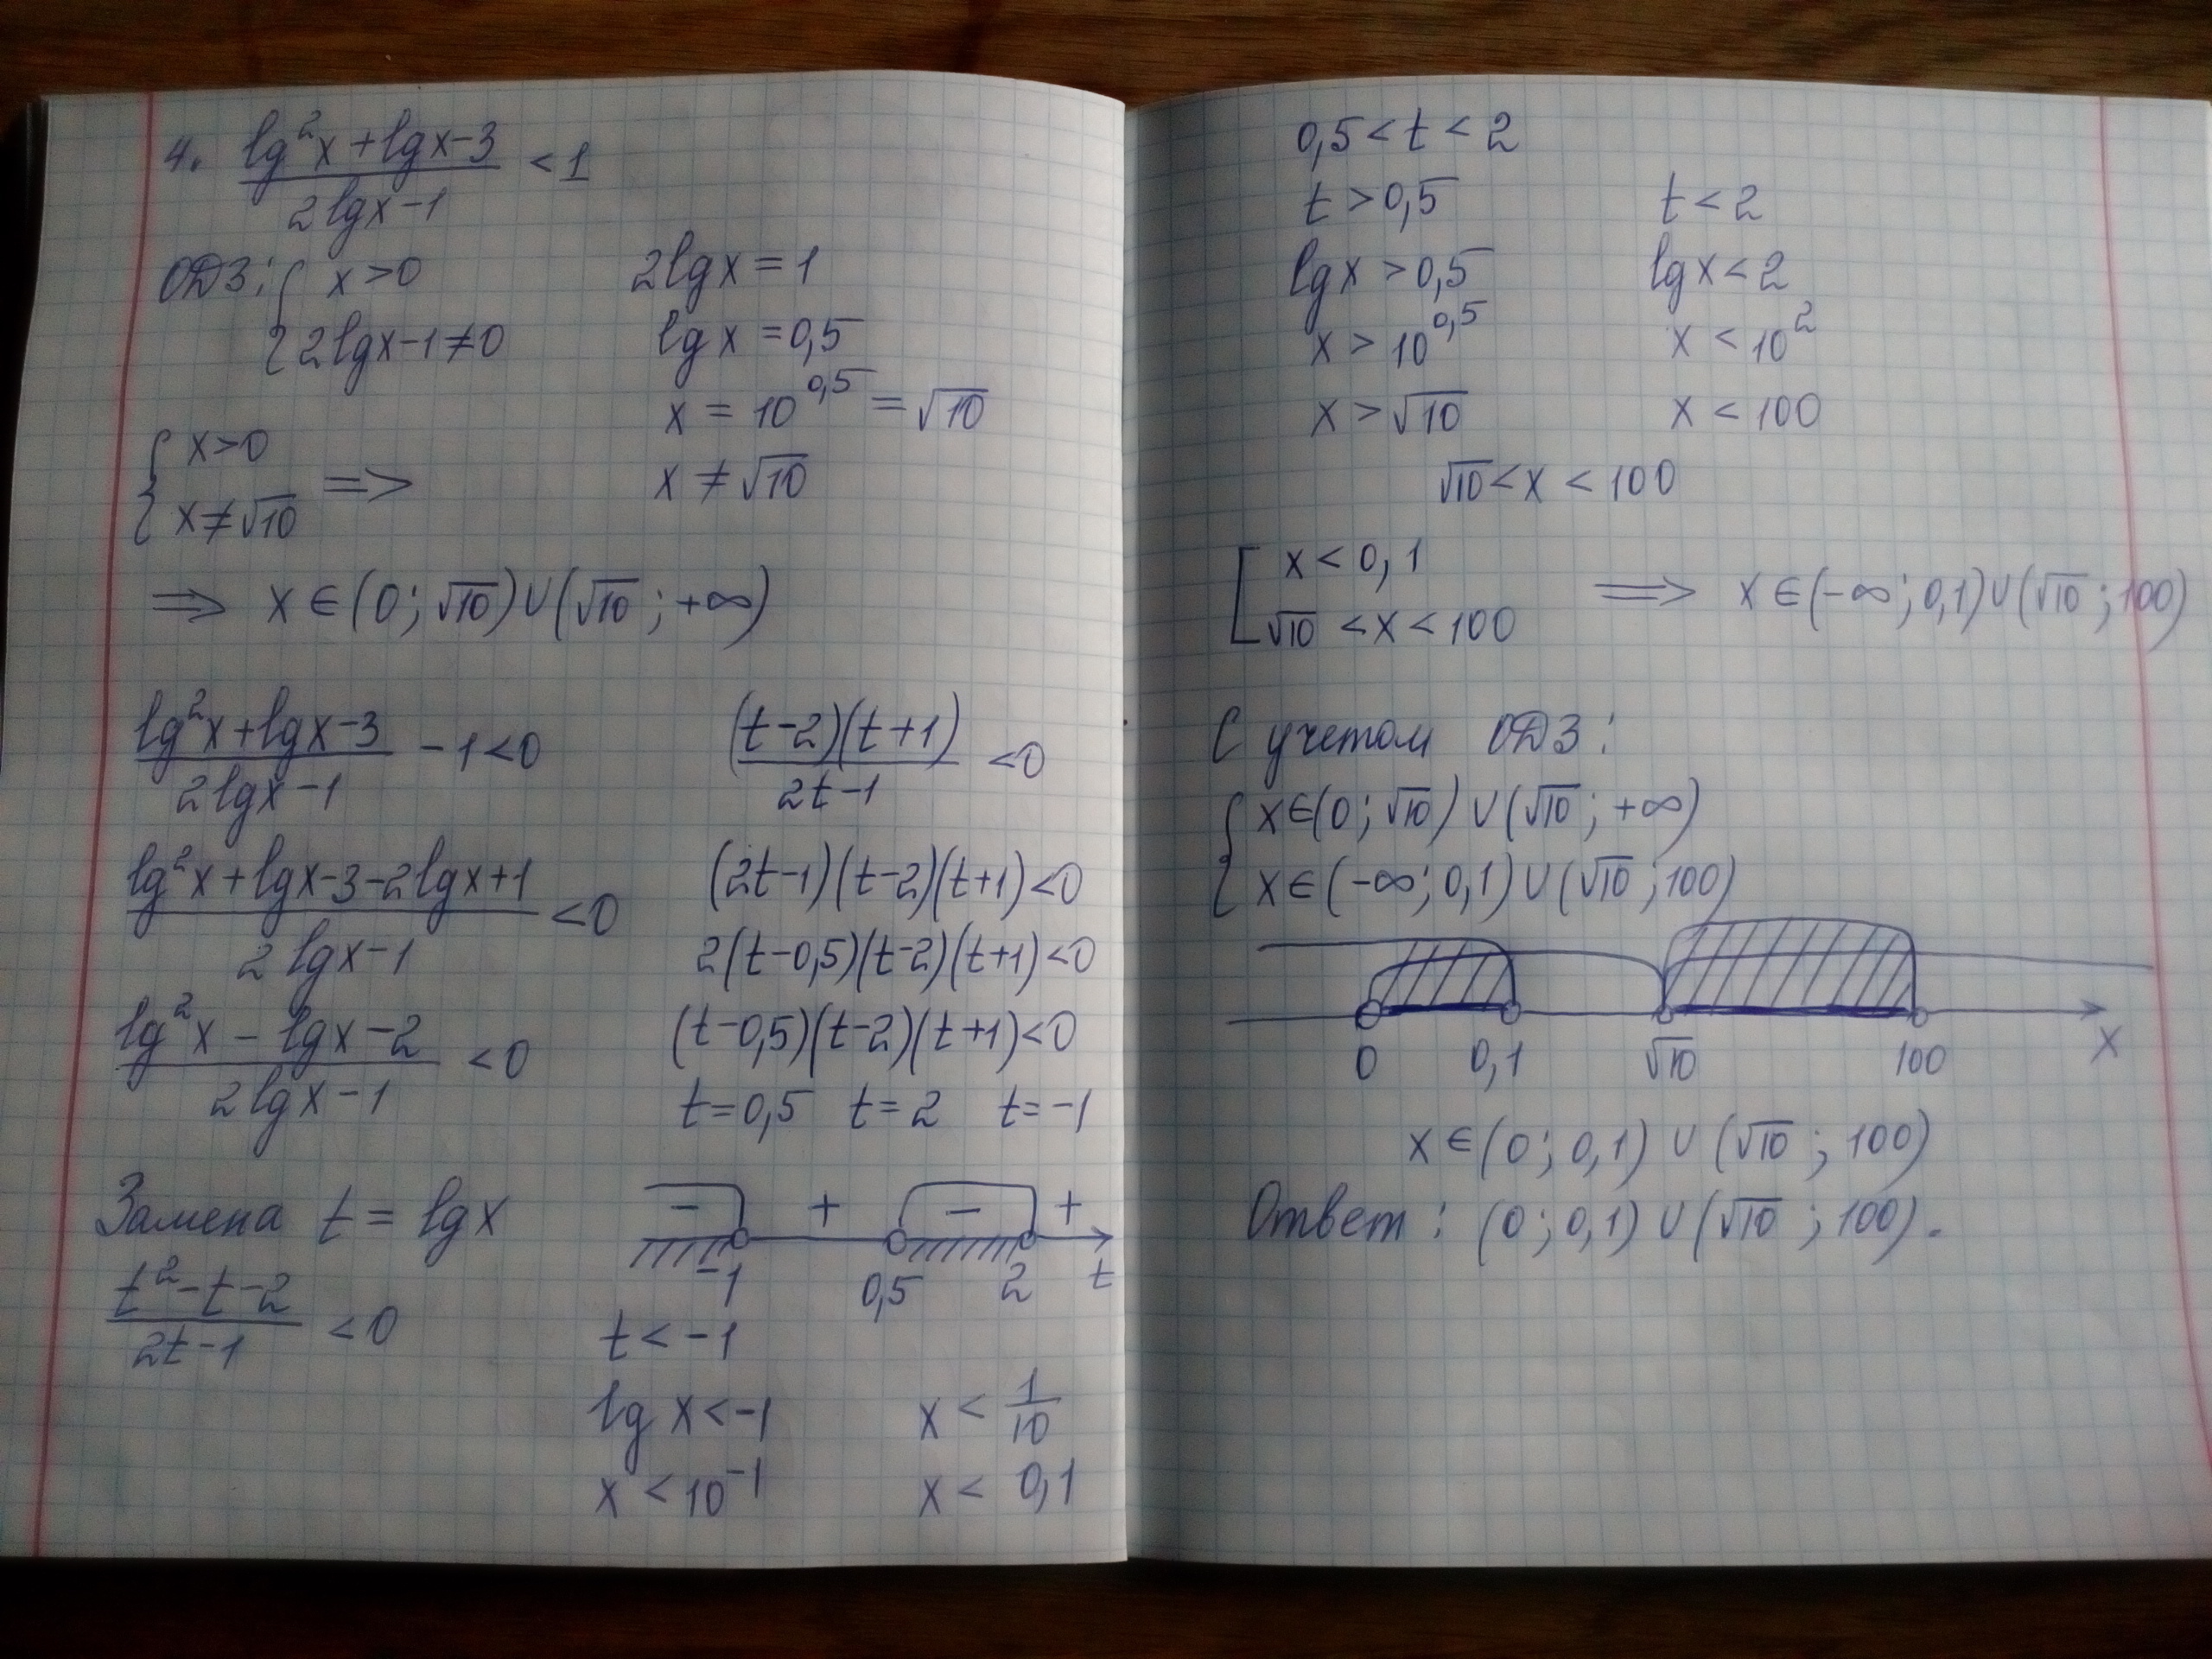 4. (lg²x + lgx - 3)/(2lgx - 1) < 1
ОДЗ: { x > 0
{ 2lgx - 1 ≠ 0
2lgx = 1
lgx = 0,5
x = 10^0,5 = √10
x ≠ √10
{ x > 0
{ x ≠ √10 =>
=> x ∈ (0; √10) ∪ (√10; +∞)
(lg²x + lgx - 3)/(2lgx - 1) - 1 < 0
(lg²x + lgx - 3 - 2lgx + 1)/(2lgx - 1) < 0
(lg²x - lgx - 2)/(2lgx - 1) < 0
Замена t = lgx
(t² - t - 2)/(2t - 1) < 0
(t - 2)(t + 1)/(2t - 1) < 0
(2t - 1)(t - 2)(t + 1) < 0
2(t - 0,5)(t - 2)(t + 1) < 0
(t - 0,5)(t - 2)(t + 1) < 0
t = 0,5 t = 2 t = -1
- + - +
-1 0,5 2 t
t < -1
lgx < -1
x < 10^-1
x < 1/10
x < 0,1
0,5 < t < 2
t > 0,5
lgx > 0,5
x > 10^0,5
x > √10
t < 2
lgx < 2
x < 10²
x < 100
√10 < x < 100
[ x < 0,1
[ √10 < x < 100 => x ∈ (-∞; 0,1) ∪ (√10; 100)
С учетом ОДЗ:
{ x ∈ (0; √10) ∪ (√10; +∞)
{ x ∈ (-∞; 0,1) ∪ (√10; 100)
0 0,1 √10 100 x
x ∈ (0; 0,1) ∪ (√10; 100)
Ответ: (0; 0,1) ∪ (√10; 100).